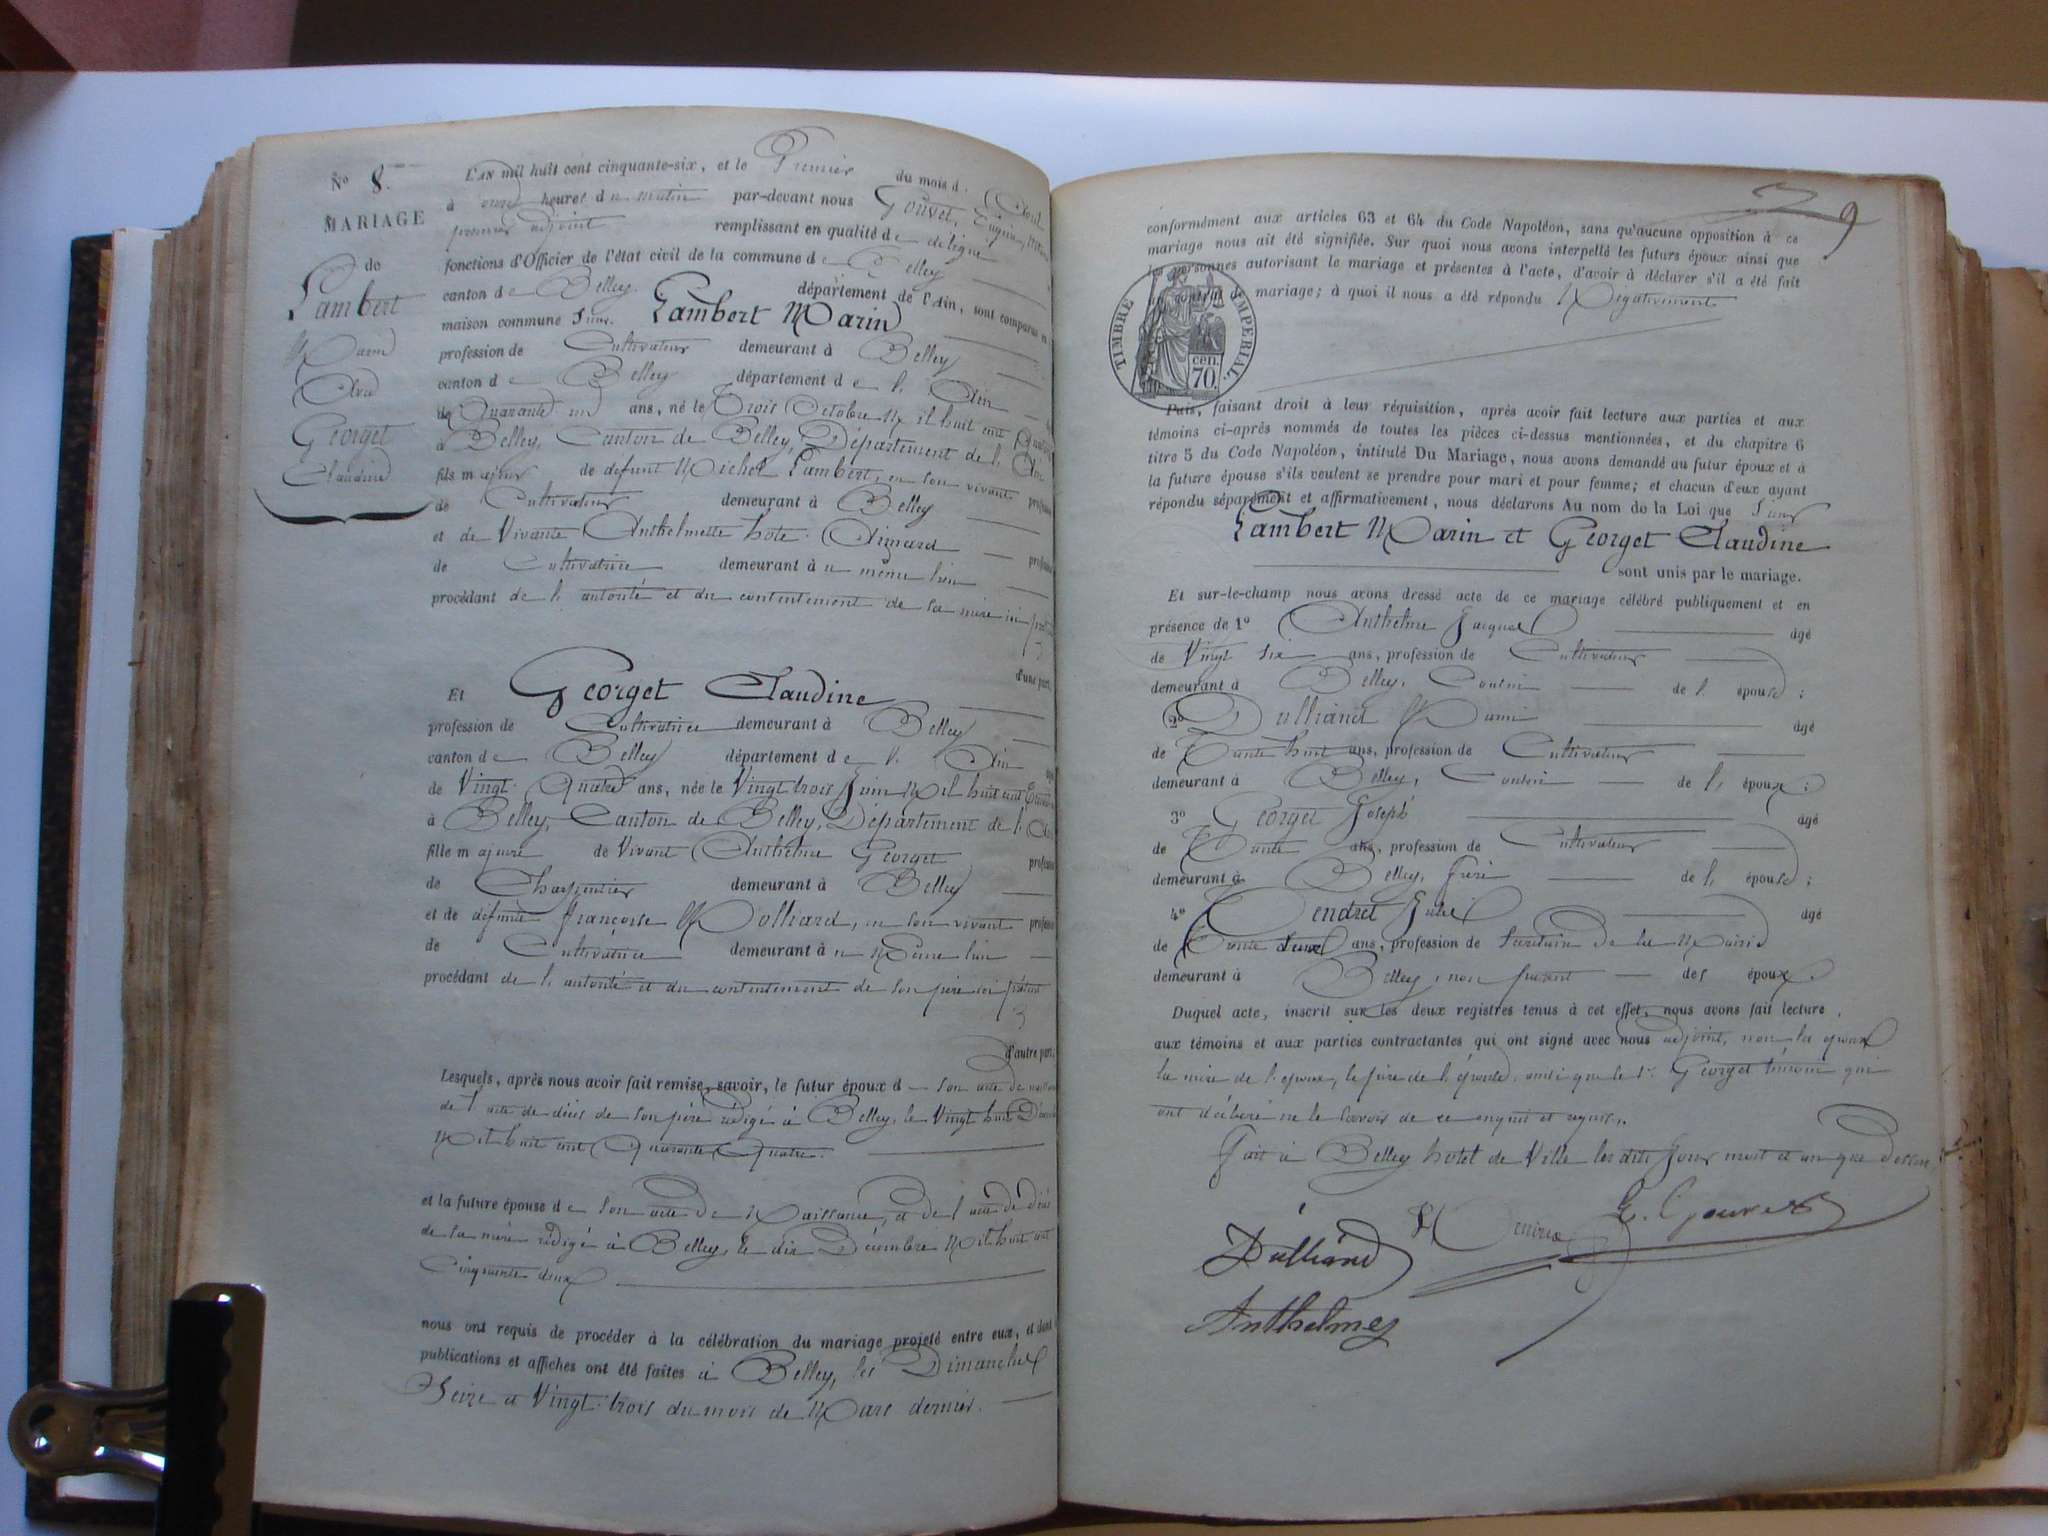 N° 8.
MARIAGE
de
Lambert
Marin
Avec
Georget
Claudine
L'AN mil huit cent cinquante-six, et le Premier du mois d'Avril
à onze heures du matin par-devant nous Gouvet, Eugène,
premier adjoint remplissant en qualité de délégué
fonctions d'Officier de l'état civil de la commune de Belley
canton de Belley. département de l'Ain, sont comparus en
maison commune Sieur Lambert Marin
profession de Cultivateur demeurant à Belley
canton de Belley département de l'Ain
de Quarante un ans, né le Trois Octobre Mil huit cent
à Belley, Canton de Belley, Département de l'Ain
fils majeur de défunt Michel Lambert, en son vivant profession
de Cultivateur demeurant à Belley
et de Vivante Anthelmette profession
de Cultivatrice demeurant à même lieu
procédant de l'autorité et du consentement de sa mère ici
d'une part,
Et Georget Claudine
profession de Cultivatrice demeurant à Belley
canton de Belley département de l'Ain
de Vingt Quatre ans, née le Vingt trois Juin Mil huit cent
à Belley, Canton de Belley, Département de l'Ain
fille majeure de Vivant Anthelme Georget profession
de Charpentier demeurant à Belley
et de défunte Françoise, en son vivant profession
de Cultivatrice demeurant à même lieu
procédant de l'autorité et du consentement de son père ici présent
d'autre part;
Lesquels, après nous avoir fait remise, savoir, le futur époux d son acte de naissance
de l'acte de décès de son père rédigé à Belley, le Vingt huit
Mil huit cent Quarante Quatre.
et la future épouse de son acte de Naissance, et de l'acte de décès
de sa mère rédigé à Belley, le dix Décembre Mil huit cent
Cinquante deux
nous ont requis de procéder à la célébration du mariage projeté entre eux, et dont
publications et affiches ont été faites à Belley, les Dimanches
Seize et Vingt-trois du mois de Mars dernier.
9
conformément aux articles 63 et 64 du Code Napoléon, sans qu'aucune opposition à ce
mariage nous ait été signifiée. Sur quoi nous avons interpellé les futurs époux ainsi que
les personnes autorisant le mariage et présentes à l'acte, d'avoir à déclarer s'il a été fait
un contrat de mariage; à quoi il nous a été répondu Négativement
TIMBRE IMPERIAL.
cen.
70.
Puis, faisant droit à leur réquisition, après avoir fait lecture aux parties et aux
témoins ci-après nommés de toutes les pièces ci-dessus mentionnées, et du chapitre 6
titre 5 du Code Napoléon, intitulé Du Mariage, nous avons demandé au futur époux et à
la future épouse s'ils veulent se prendre pour mari et pour femme; et chacun d'eux ayant
répondu séparément et affirmativement, nous déclarons Au nom de la Loi que Sieur
Lambert Marin et Georget Claudine
sont unis par le mariage.
Et sur-le-champ nous avons dressé acte de ce mariage célébré publiquement et en
présence de 1° Anthelme Jacques âgé
de Vingt six ans, profession de Cultivateur
demeurant à Belley, Cousin de l'épouse;
2° Dulliand âgé
de Trente huit ans, profession de Cultivateur
demeurant à Belley, Cousin de l'époux;
3° Georget Joseph âgé
de Trente ans, profession de Cultivateur
demeurant à Belley, frère de l'épouse;
4° Tendret Jules âgé
de Trente deux ans, profession de Secrétaire de la Mairie
demeurant à Belley, non parent des époux.
Duquel acte, inscrit sur les deux registres tenus à cet effet, nous avons fait lecture
aux témoins et aux parties contractantes qui ont signé avec nous adjoint, non les époux
la mère de l'époux, le père de l'épouse, ainsi que le Sr Georget témoin qui
ont déclaré ne le savoir de ce enquis et requis.
Fait à Belley hôtel de Ville les dits jour mois et an que dessus
E. Gouvet
Dulliand
Anthelme